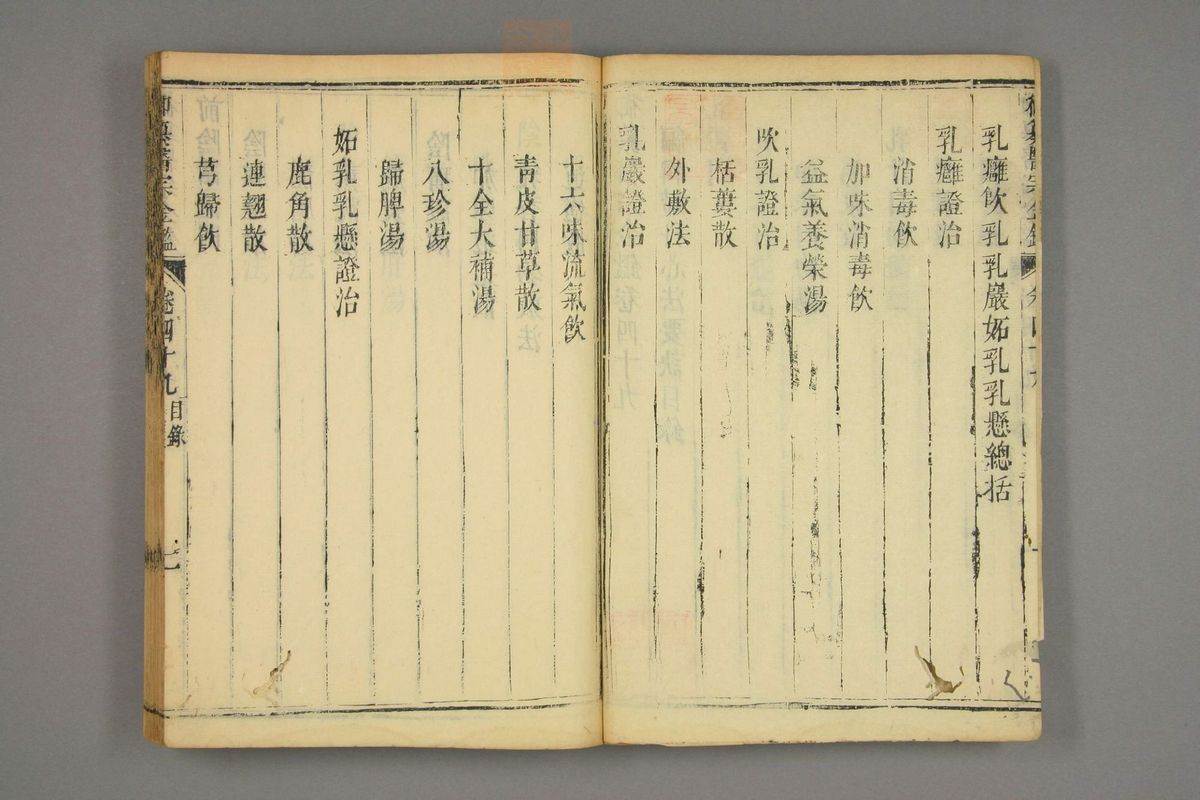 乳癰飲乳乳巖妬乳乳懸總括
乳癰證治
消毒飲
加味消毒飲
益氣養榮湯
吹乳證治
栝蔞散
外敷法
乳巖證治
十六味流氣飲
靑皮甘草散
十全大補湯
八珍湯
歸脾湯
妬乳乳懸證治
鹿角散
連翹散
芎歸飲
御纂醫宗金鑑
卷四十九
目錄